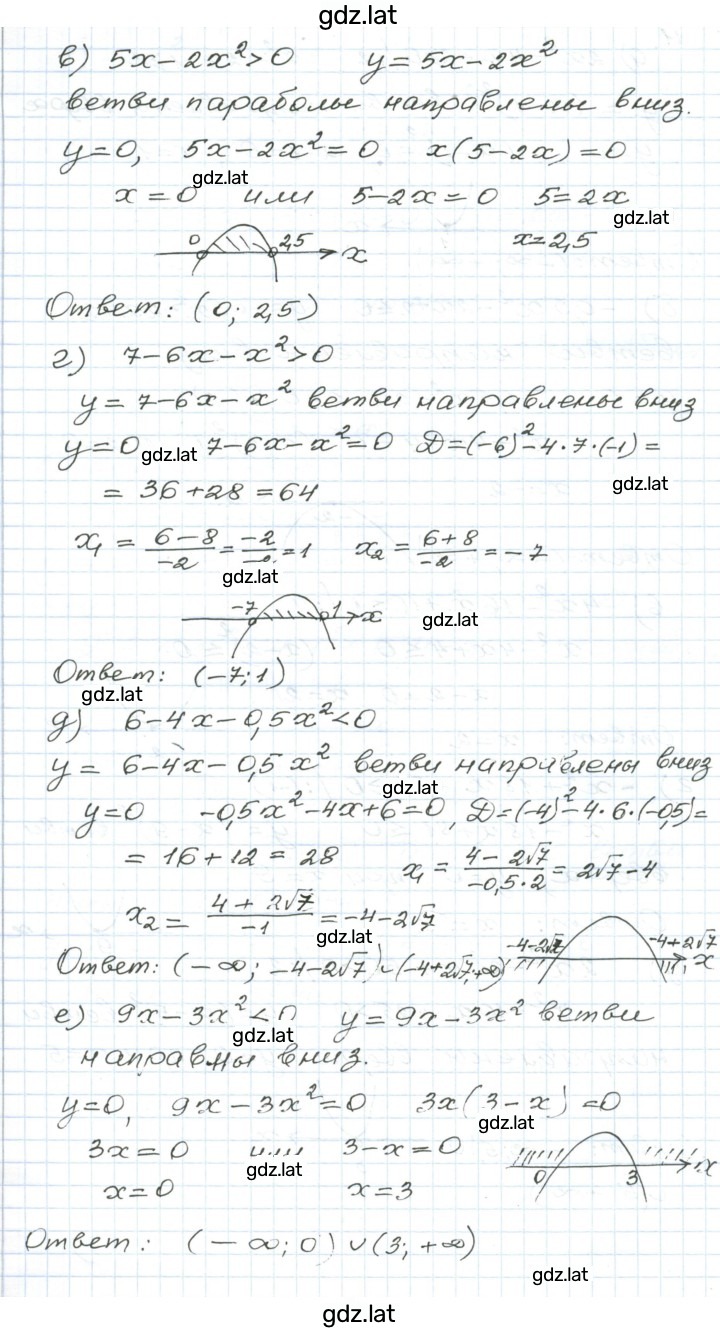 gdz.lat
в) 5x-2x²>0 y=5x-2x²
ветви параболы направлены вниз.
y=0, 5x-2x²=0 x(5-2x)=0
gdz.lat
x=0 или 5-2x=0 5=2x
gdz.lat
x=2,5
0 2,5 x
Ответ: (0; 2,5)
г) 7-6x-x²>0
y=7-6x-x² ветви направлены вниз
y=0 gdz.lat 7-6x-x²=0 D=(-6)²-4·7·(-1)=
= 36+28=64 gdz.lat
x₁ = (6-8)/(-2) = = 1 x₂ = (6+8)/(-2) = -7
gdz.lat
-7 1 x gdz.lat
Ответ: (-7;1)
gdz.lat
д) 6-4x-0,5x²<0
y= 6-4x-0,5x² ветви направлены вниз
gdz.lat
y=0 -0,5x²-4x+6=0, D=(-4)²-4·6·(-0,5)=
= 16+12=28 x₁ = (4-2√7)/(-0,5·2) = 2√7-4
x₂ = (4+2√7)/(-1) = -4-2√7
gdz.lat
-4-2√7 -4+2√7 x
Ответ: (-∞; -4-2√7)∪(-4+2√7;+∞)
е) 9x-3x²<0 y=9x-3x² ветви
gdz.lat
направлны вниз.
y=0, 9x-3x²=0 3x(3-x)=0
gdz.lat
3x=0 или 3-x=0
gdz.lat
0 3 x
x=0 x=3
Ответ: (-∞; 0)∪(3; +∞)
gdz.lat
gdz.lat